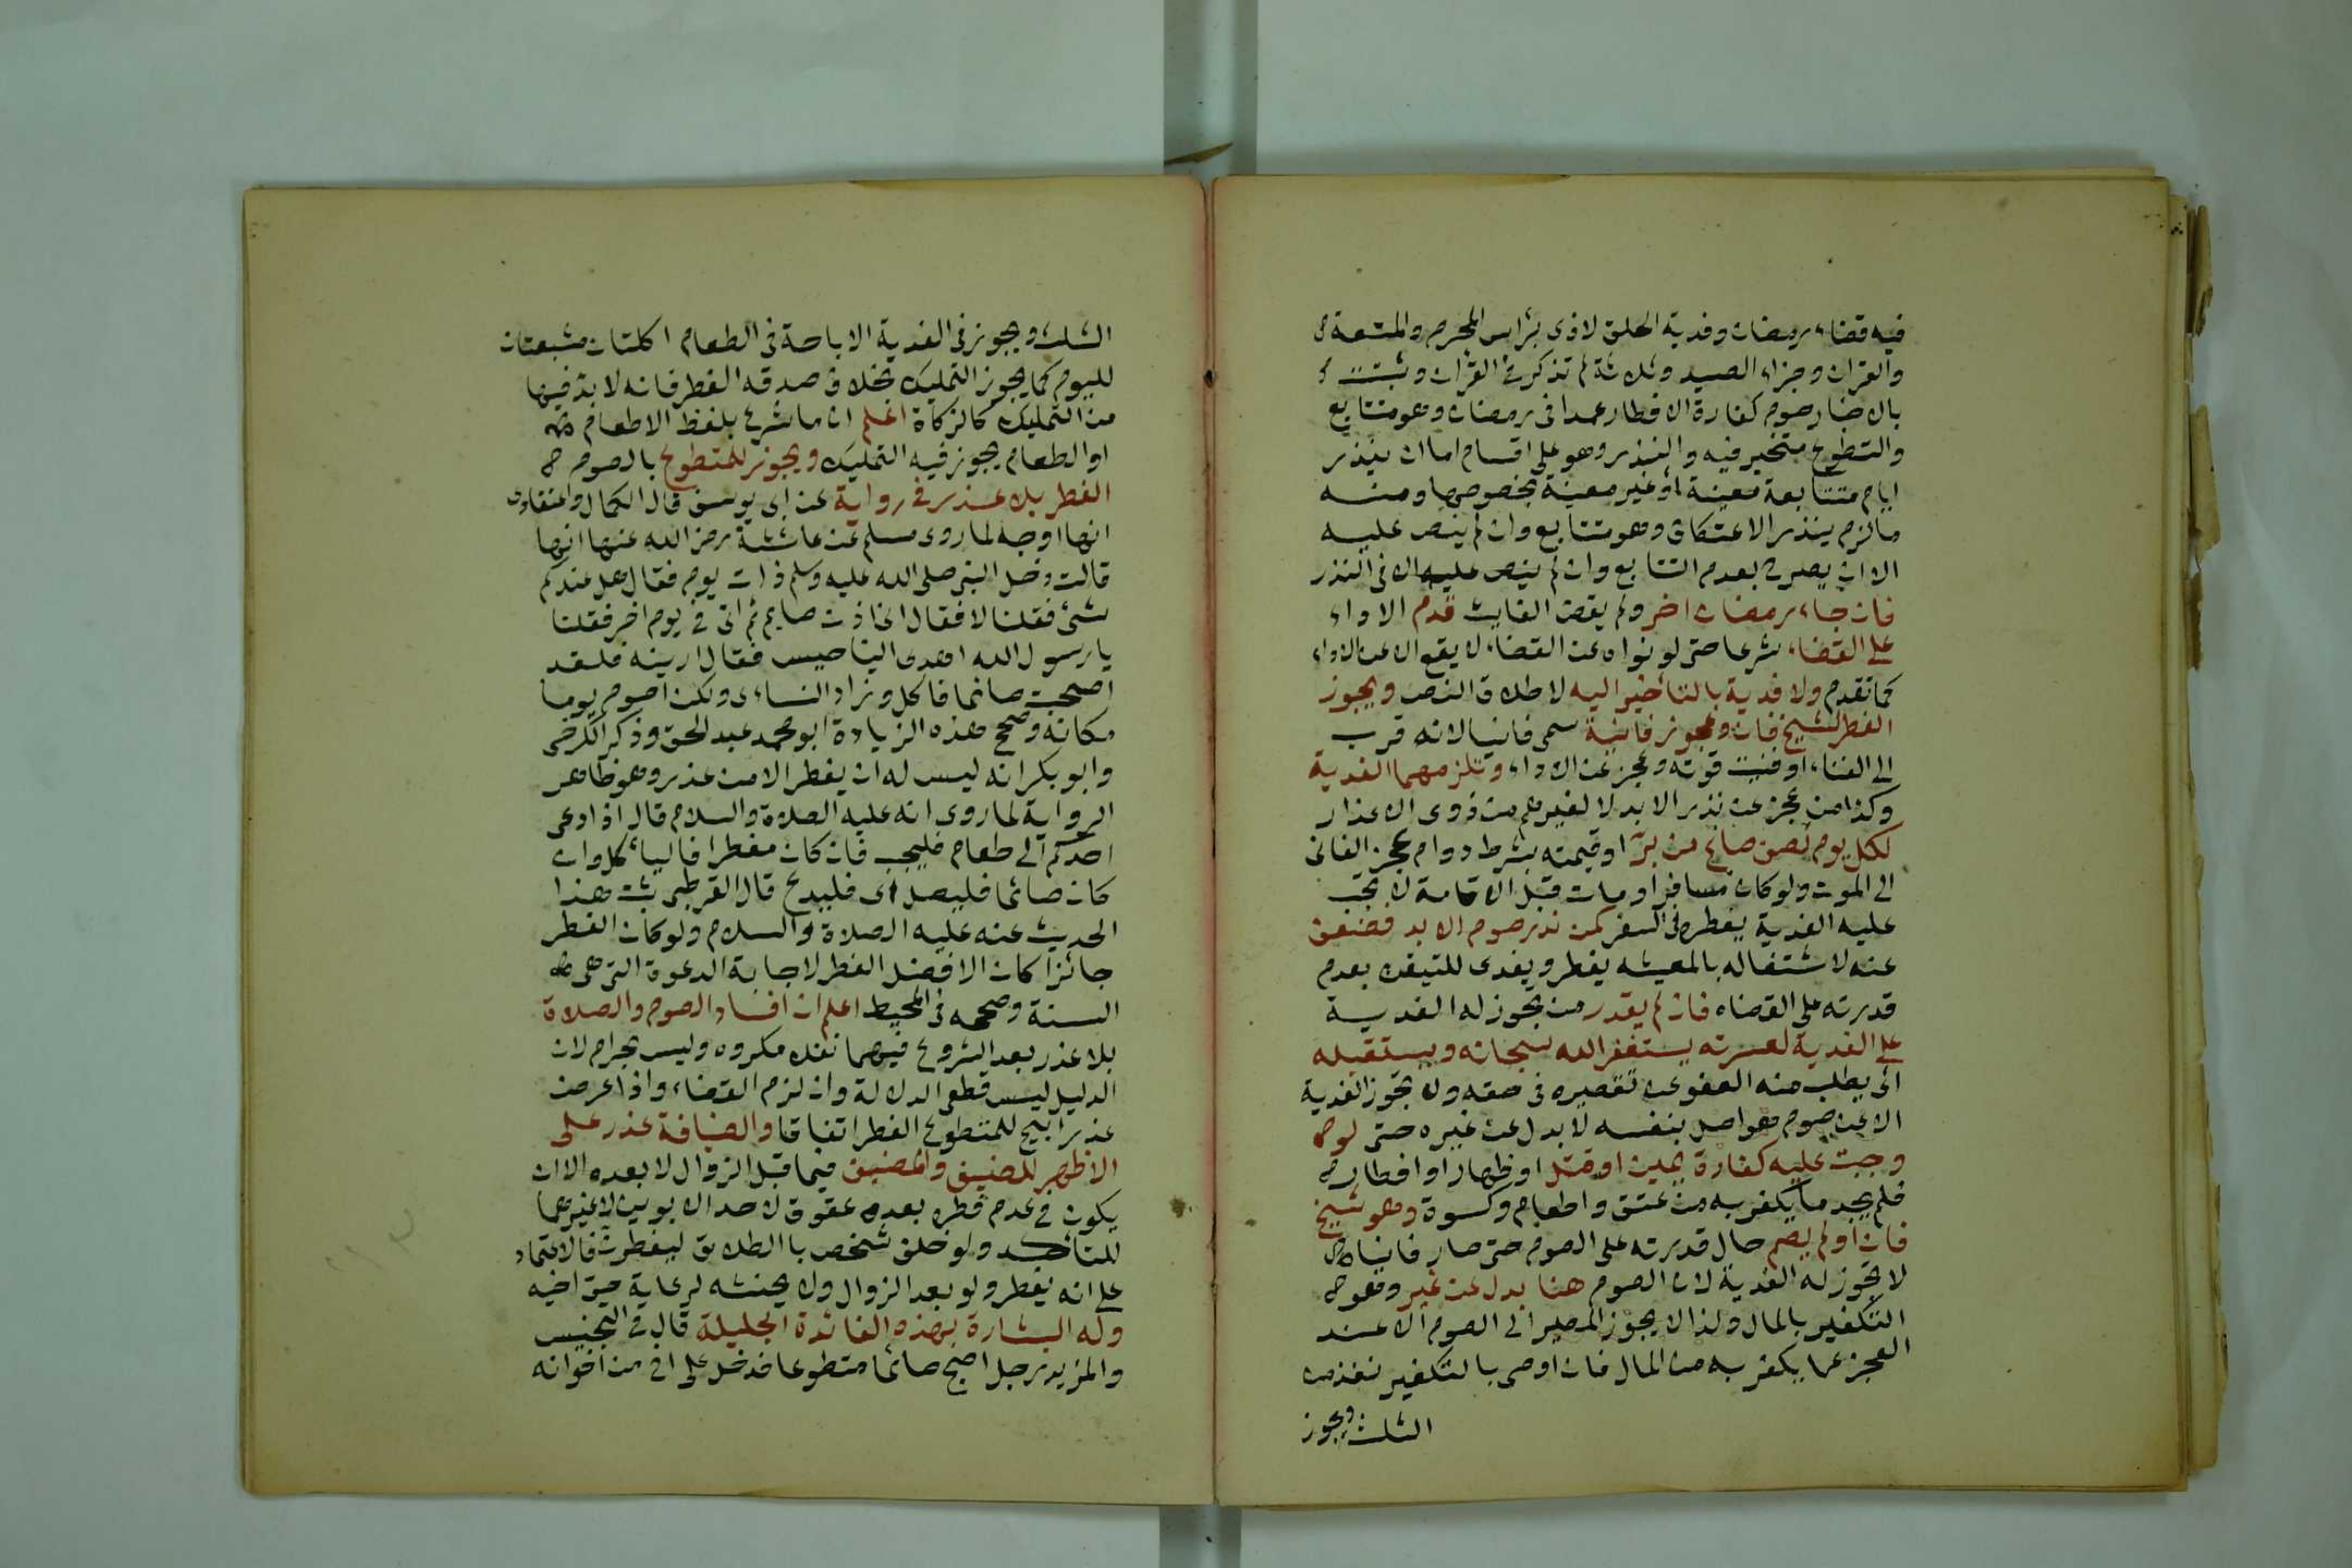 فيه قضاء رمضان وفدية الحلق لاذى برأس المحرم والمتعة
والقران وجزاء الصيد وثلاثة لم تذكر في القرآن وثبتت
بالاخبار صوم كفارة الافطار عمدا في رمضان وهو متتابع
والتطوع متخير فيه والنذر وهو على اقسام اما ان ينذر
ايام متتابعة معينة او غير معينة بخصوصها ومنه
ما لزم بنذر الاعتكاف وهو متتابع وان لم ينص عليه
الا ان يصرح بعدم التتابع وان لم ينص عليه الا في النذر
فان جاء رمضان اخر ولم يقض الفايت قدم الاداء
على القضاء شرعا حتى لو نواه عن القضاء لا يقع الا عن الاداء
كما تقدم ولا فدية بالتأخير اليه لاطلاق النص ويجوز
الفطر لشيخ فان وعجوز فانية سمى فانيا لانه قرب
الى الفناء او فنيت قوته وعجز عن الاداء وتلزمهما الفدية
وكذا من عجز عن نذر الابد لا لغيرهم من ذوى الاعذار
لكل يوم نصف صاع من بر او قيمته بشرط دوام عجز الفانى
الى الموت ولو كان مسافرا ومات قبل الاقامة لا يجب
عليه الفدية بفطره فى السفر كمن نذر صوم الابد فضعف
عنه لاشتغاله بالمعيشه يفطر ويفدى للتيقن بعدم
قدرته على القضاء فان لم يقدر من تجوز له الفدية
على الفدية لعسرته يستغفر الله سبحانه ويستقيله
اى يطلب منه العفو عن تقصيره فى حقه ولا تجوز الفدية
الا عن صوم هو اصل بنفسه لا بدل عن غيره حتى لو
وجبت عليه كفارة يمين او قتل او ظهار او افطار
فلم يجد ما يكفر به من عتق واطعام وكسوة وهو شيخ
فان او لم يصم حال قدرته على الصوم حتى صار فانيا
لا تجوز له الفدية لان الصوم هنا بدل عن غير وهو
التكفير بالمال ولذا لا يجوز المصير الى الصوم الا عند
العجز عما يكفر به من المال فان اوصى بالتكفير نفذ من
الثلث ويجوز
الثلث ويجوز فى الفدية الاباحة فى الطعام اكلتان مشبعتان
لليوم كما يجوز التمليك بخلاف صدقه الفطر فانه لا بد فيها
من التمليك كالزكاة اعلم ان ما شرع بلفظ الاطعام
او الطعام يجوز فيه التمليك ويجوز للمتطوع بالصوم
الفطر بلا عذر فى رواية عن ابى يوسف قال الكمال واعتقادى
انها اوجه لما روى مسلم عن عائشة رضى الله عنها انها
قالت دخل النبى صلى الله عليه وسلم ذات يوم فقال هل عندكم
شئ فقلنا لا فقال انى اذن صايم ثم اتى فى يوم اخر فقلنا
يا رسول الله اهدى الينا حيس فقال ارينه فلقد
اصبحت صائما فاكل وزاد النساءى ولكن اصوم يوما
مكانه وصحح هذه الزيادة ابو محمد عبد الحق وذكر الكرخى
وابو بكر انه ليس له ان يفطر الا من عذر وهو ظاهر
الرواية لما روى انه عليه الصلاة والسلام قال اذا دعى
احدكم الى طعام فليجب فان كان مفطرا فاليأكل وان
كان صائما فليصل اى فليدع قال القرطبى ثبت هذا
الحديث عنه عليه الصلاة والسلام ولو كان الفطر
جائزا كان الافضل الفطر لاجابة الدعوة التى هى
السنة وصححه فى المحيط اعلم ان افساد الصوم والصلاة
بلا عذر بعد الشروع فيهما نفلا مكروه وليس بحرام لان
الدليل ليس قطعى الدلالة وان لزم القضاء واذا عرض
عذر ابيح للمتطوع الفطر اتفاقا والضيافة عذر على
الاظهر للضيف والمضيف فيما قبل الزوال لا بعده الا ان
يكون فى عدم فطره بعده عقوق لاحد الابوين لا غيرهما
للتأكد ولو حلف شخص بالطلاق ليفطرن فالاعتماد
على انه يفطر ولو بعد الزوال ولا يحنثه لرعاية حق اخيه
وله البشارة بهذه الفائدة الجليلة قال فى التجنيس
والمزيد رجل اصبح صائما متطوعا فدخل على اخ من اخوانه